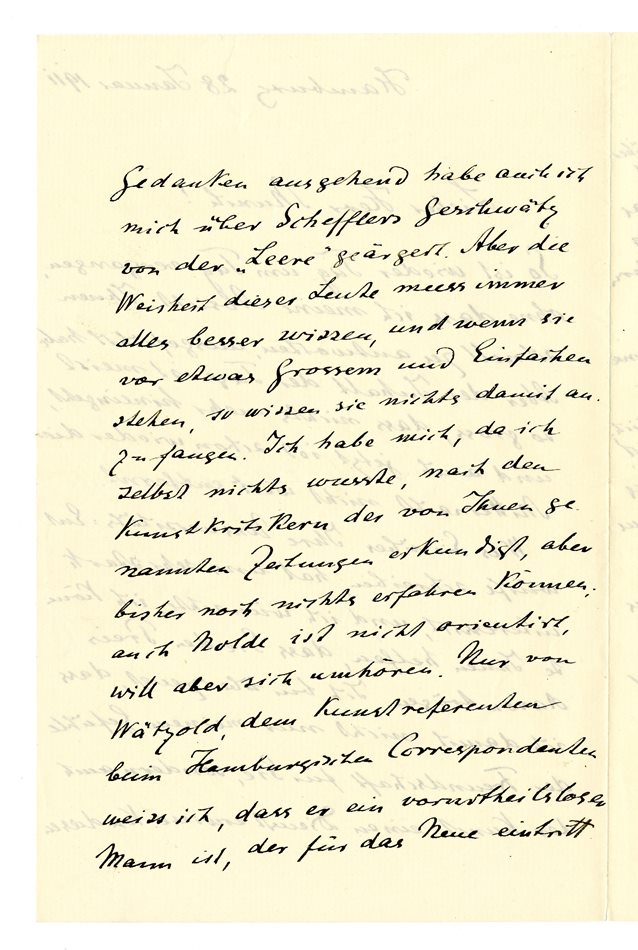 Hamburg 28 Januar 1911
Gedanken ausgehend habe auch ich
mich über Schefflers Geschwätz
von der „Leere" geärgert. Aber die
Weisheit dieser Leute muss immer
alles besser wissen, und wenn sie
vor etwas Grossem und Einfachen
stehen, so wissen sie nichts damit an-
zufangen. Ich habe mich, da ich
selbst nichts wusste, nach den
Kunstkritikern der von Ihnen ge-
nannten Zeitungen erkundigt, aber
bisher noch nichts erfahren können;
auch Nolde ist nicht orientirt,
will aber sich umhören. Nur von
Wätzold, dem Kunstreferenten
beim Hamburgischen Correspondenten
weiss ich, dass er ein vorurtheilsloser
Mann ist, der für das Neue eintritt